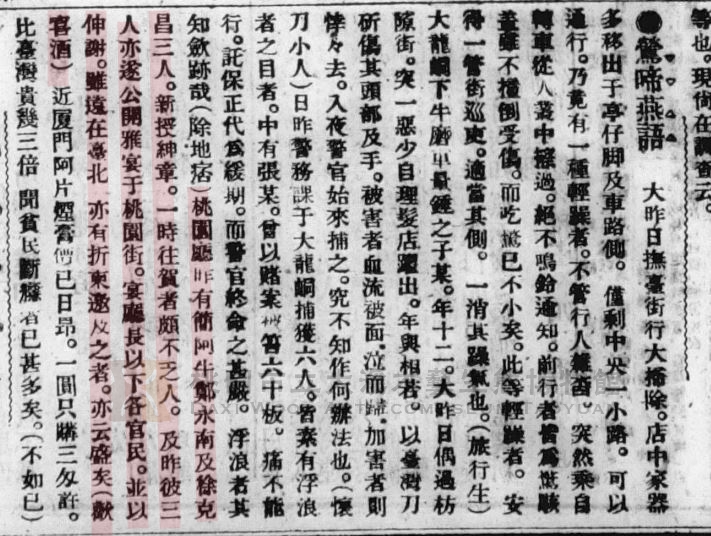 等也。現尚在調查云。
●鶯啼燕語　大昨日撫臺街行大掃除。店中家器
多移出于亭仔脚及車路側。僅剩中央一小路。可以
通行。乃竟有一種輕躁者。不管行人雜沓 突然乘自
轉車從人叢中擦過。絕不鳴鈴通知。前行者皆爲驚駭
蓋雖不撞倒受傷。而吃驚已不小矣。此等輕躁者。安
得一管街巡吏。適當其側。一消其躁氣也。（旅行生）
大龍峒下牛磨 之子某。年十二。大昨日偶過枋
隙街。突一惡少自理髮店躍出。年與相若 以臺灣刀
斫傷其頭部及手。被害者血流被面。泣而歸。加害者則
悻々去。入夜警官始來捕之。究不知作何辦法也。（懷
刀小人）日昨警務課于大龍峒捕獲六人。皆素有浮浪
者之目者。中有張某。曾以賭案被笞六十板。痛不能
行。託保正代爲緩期。而警官終命之甚嚴。浮浪者其
知歛跡哉（除地痞）桃園廳昨有簡阿牛鄭永南及徐克
昌三人。新授紳章。一時往賀者頗不乏人。及昨彼三
人亦遂公開雅宴于桃園街。宴廳長以下各官民。並以
伸謝。雖遠在臺北 亦有折東邀及之者。亦云盛矣（獻
客酒）近厦門阿片煙膏價已日昂。一圓只購三匁許。
比臺灣貴幾三倍 聞貧民斷癮者已甚多矣。（不如已）